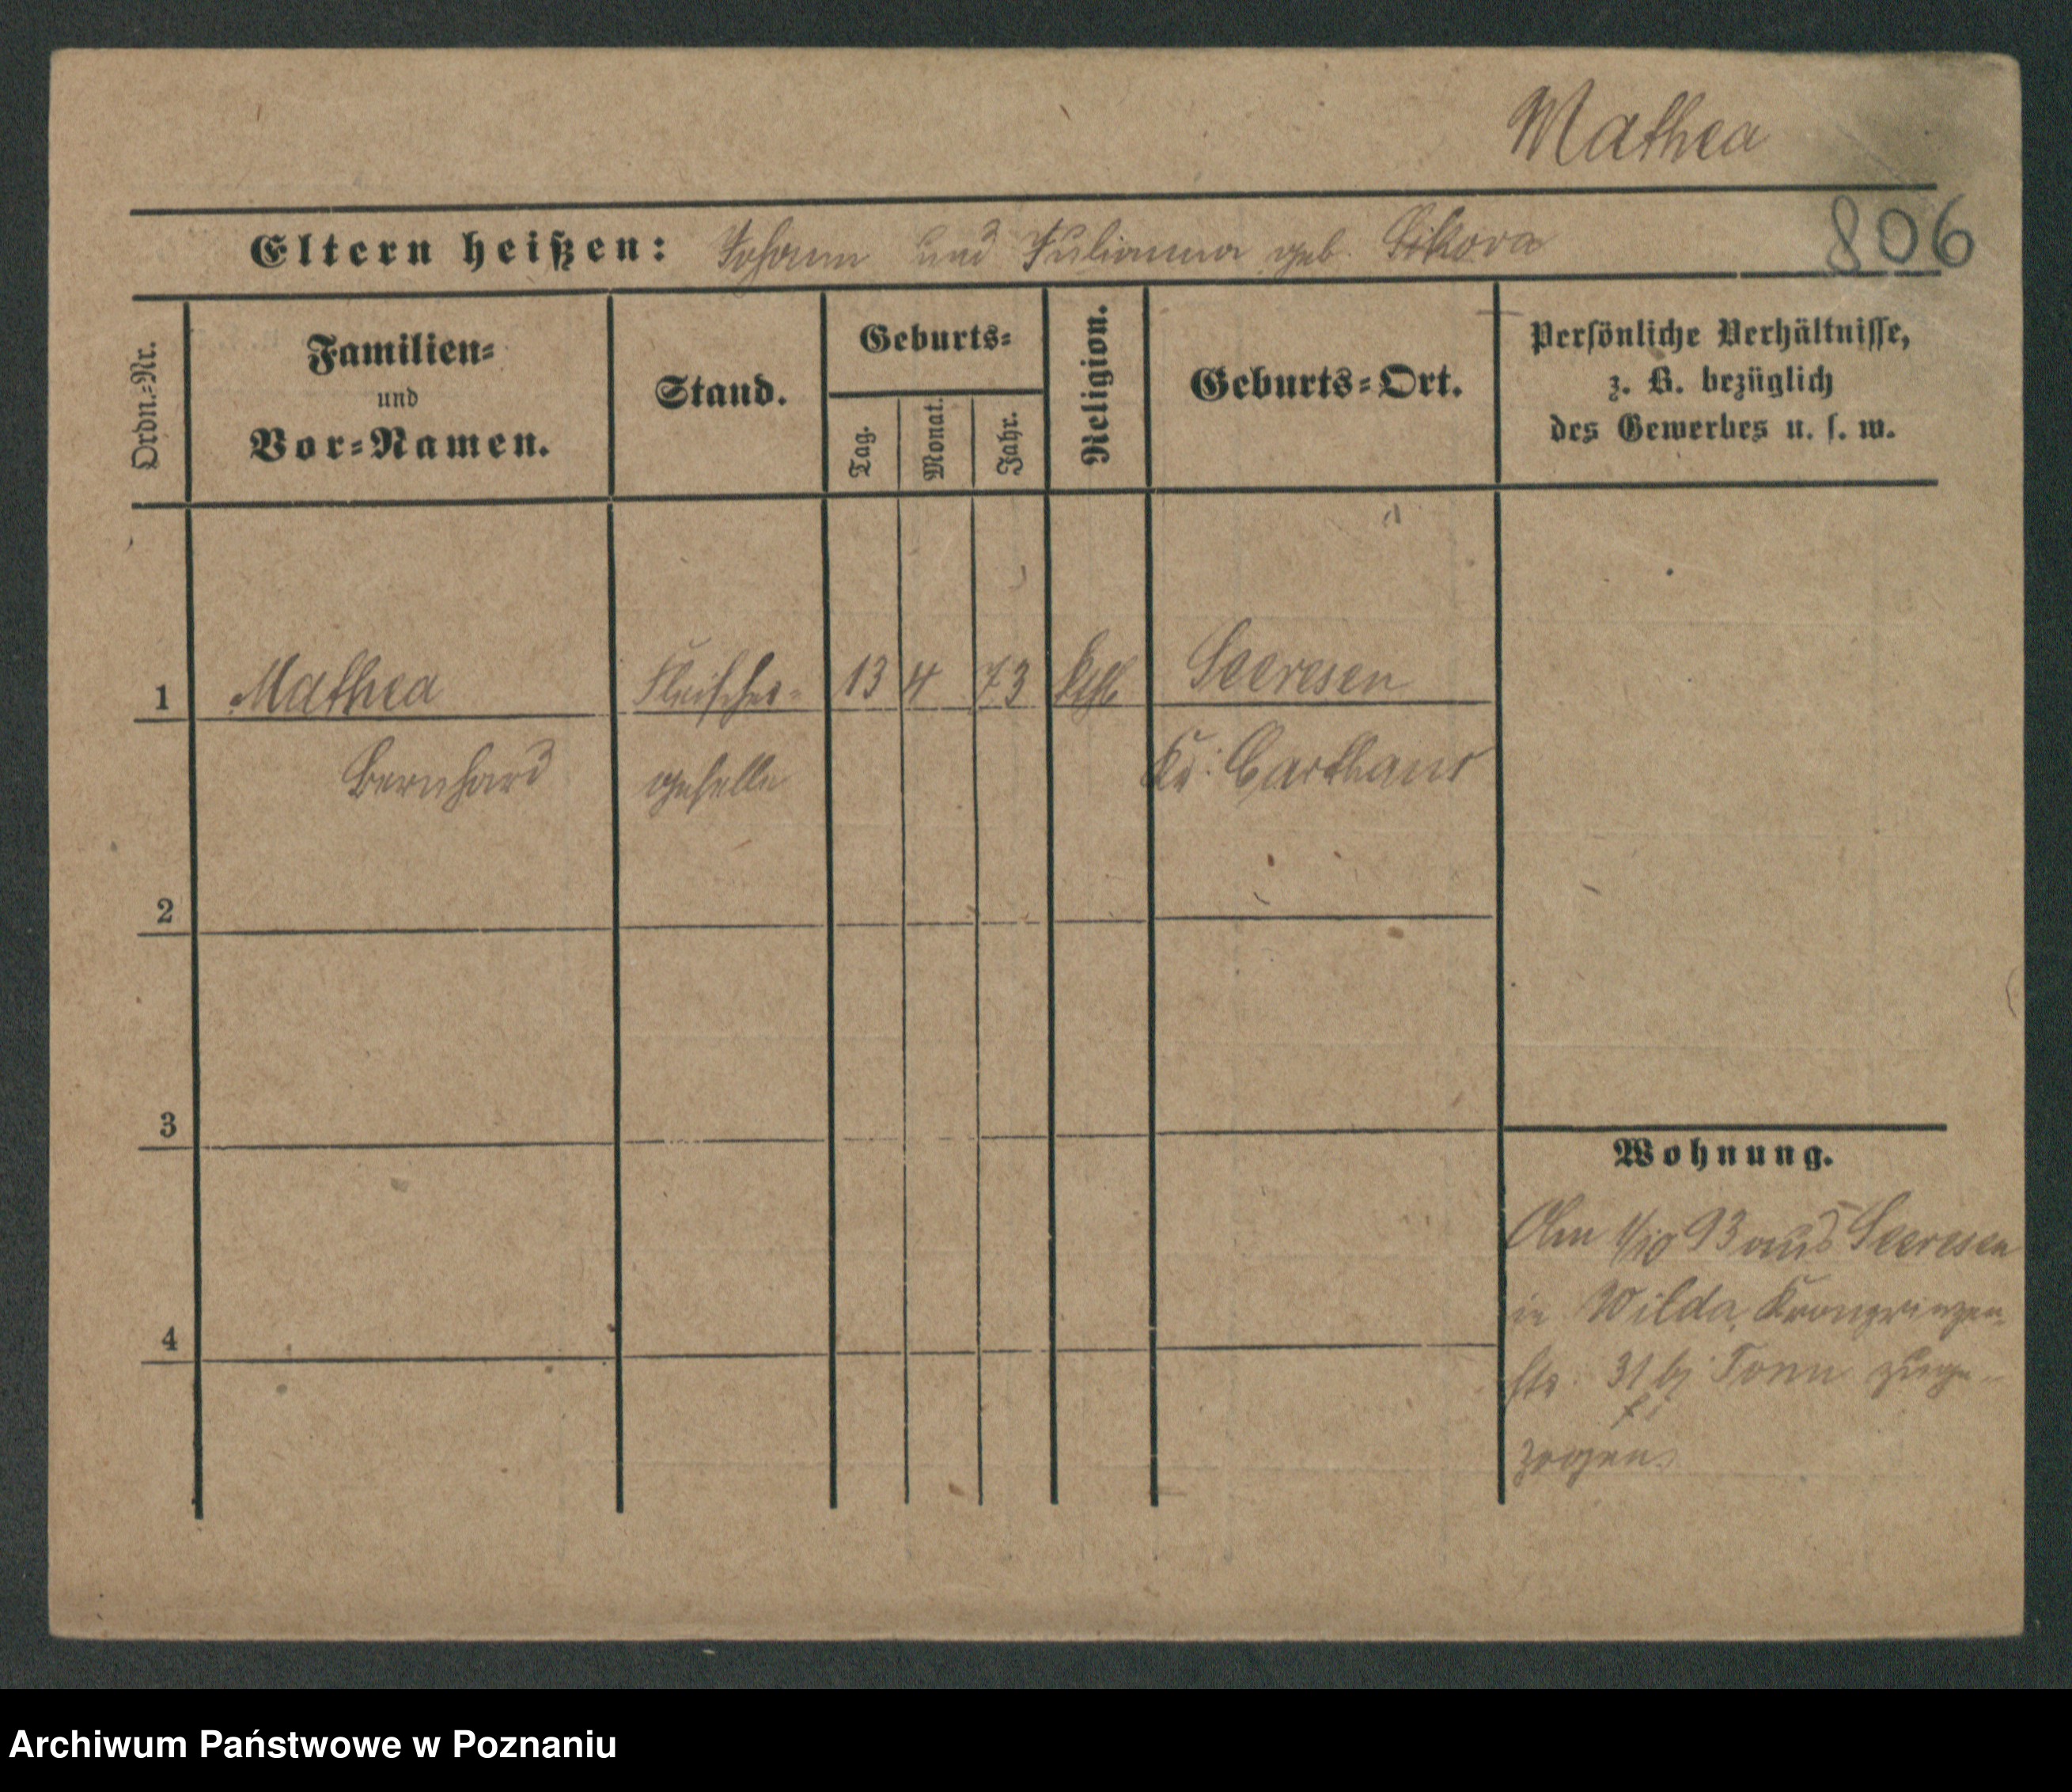 Mathea
806
Eltern heißen: Johann und Julianna geb. Sikora
Ordn.=Nr.
Familien=
und
Vor=Namen.
Stand.
Geburts=
Tag.
Monat.
Jahr.
Religion.
Geburts=Ort.
Persönliche Verhältnisse,
z. B. bezüglich
des Gewerbes u. s. w.
1 Mathea Fleischer= 13 4 73 kath Seeresen
Bernhard geselle Kr: Carthaus
2
3
4
Wohnung.
Am 1/10 93 aus Seeresen
in Wilda, Kronprinzen=
str. 31 bj Tonn zuge=
zogen
Archiwum Państwowe w Poznaniu